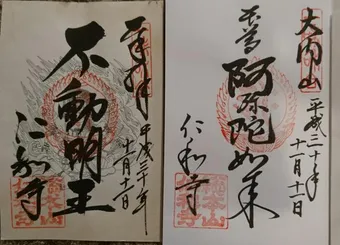 奉拝
平成三十年
十一月十一日
不動明王
仁和寺
大内山
平成三十年
十一月十一日
本尊
阿弥陀如来
仁和寺
総本山
仁和寺